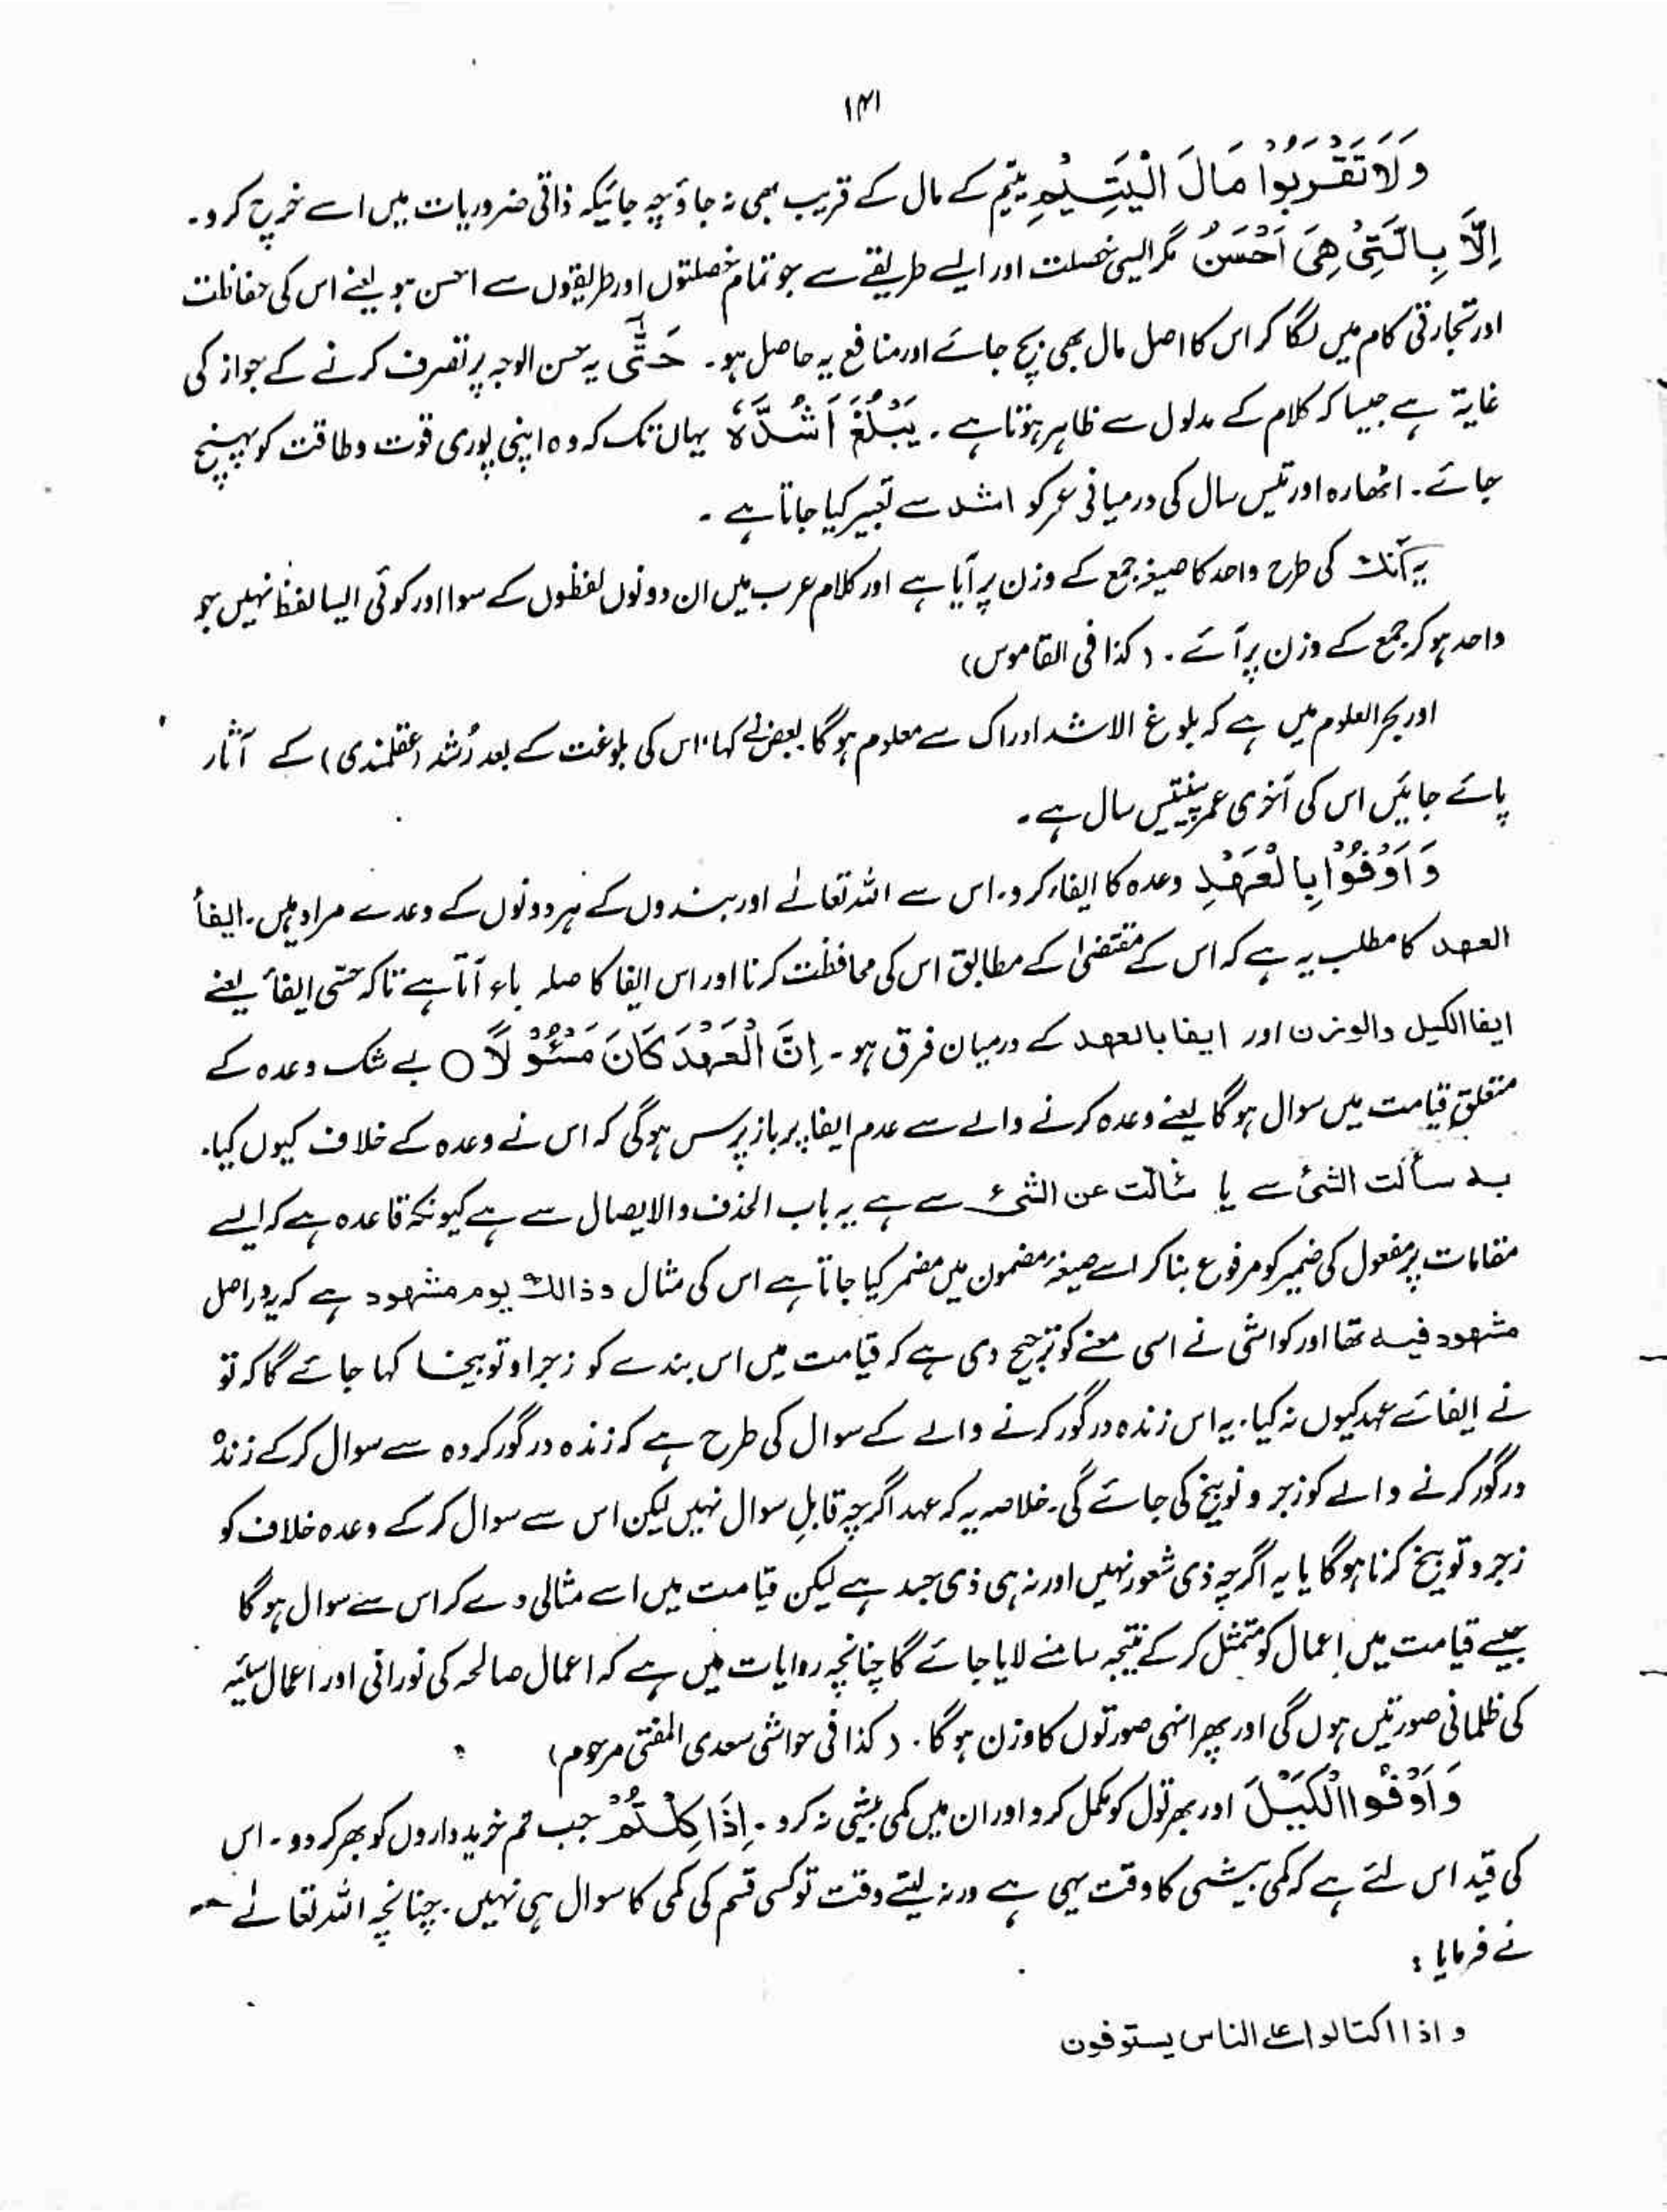 ۱۴۱
وَلَا تَقْرَبُوْا مَالَ الْیَتِیْمِ یتیم کے مال کے قریب بھی نہ جاؤ چہ جائیکہ ذاتی ضروریات میں اسے خرچ کرو۔
اِلَّا بِالَّتِیْ هِیَ اَحْسَنُ مگر ایسی خصلت اور ایسے طریقے سے جو تمام خصلتوں اور طریقوں سے احسن ہو یعنے اس کی حفاظت
اور تجارتی کام میں لگا کر اس کا اصل مال بھی بچ جائے اور منافع یہ حاصل ہو۔ حَتّٰی یہ حسن الوجہ پر تصرف کرنے کے جواز کی
غایۃ ہے جیسا کہ کلام کے مدلول سے ظاہر ہوتا ہے۔ یَبْلُغَ اَشُدَّہٗ یہاں تک کہ وہ اپنی پوری قوت و طاقت کو پہنچ
جائے۔ اٹھارہ اور تیس سال کی درمیانی عمر کو اشد سے تعبیر کیا جاتا ہے۔
یہ آنک کی طرح واحد کا صیغہ جمع کے وزن پر آیا ہے اور کلام عرب میں ان دونوں لفظوں کے سوا اور کوئی ایسا لفظ نہیں جو
واحد ہو کر جمع کے وزن پر آئے۔ (کذا فی القاموس)
اور بحر العلوم میں ہے کہ بلوغ الاشد ادراک سے معلوم ہوگا بعض نے کہا: اس کی بلوغت کے بعد رُشد (عقلمندی) کے آثار
پائے جائیں اس کی آخری عمر پینتیس سال ہے۔
وَاَوْفُوْا بِالْعَهْدِ وعدہ کا ایفاء کرو۔ اس سے اللہ تعالےٰ اور بندوں کے ہر دونوں کے وعدے مراد ہیں۔ ایفأ
العهد کا مطلب یہ ہے کہ اس کے مقتضیٰ کے مطابق اس کی محافظت کرنا اور اس ایفا کا صلہ باء آتا ہے تاکہ حسّی ایفأ یعنے
ایفا الکیل والوزن اور ایفا بالعهد کے درمیان فرق ہو۔ اِنَّ الْعَهْدَ كَانَ مَسْئُوْلًا ○ بے شک وعدہ کے
متعلق قیامت میں سوال ہوگا یعنے وعدہ کرنے والے سے عدم ایفا پر باز پرس ہوگی کہ اس نے وعدہ کے خلاف کیوں کیا۔
یہ سألت الشئ سے یا سألت عن الشئ سے ہے یہ باب الحذف والایصال سے ہے کیونکہ قاعدہ ہے کہ ایسے
مقامات پر مفعول کی ضمیر کو مرفوع بنا کر اسے صیغۂ مضمون میں مضمر کیا جاتا ہے اس کی مثال وذالك یوم مشهود ہے کہ یہ دراصل
مشهود فیہ تھا اور کواشی نے اسی معنے کو ترجیح دی ہے کہ قیامت میں اس بندے کو زجراً و توبیخاً کہا جائے گا کہ تو
نے ایفائے عہد کیوں نہ کیا۔ یہ اس زندہ درگور کرنے والے کے سوال کی طرح ہے کہ زندہ درگور کردہ سے سوال کر کے زندہ
درگور کرنے والے کو زجر و توبیخ کی جائے گی۔ خلاصہ یہ کہ عہد اگرچہ قابل سوال نہیں لیکن اس سے سوال کر کے وعدہ خلاف کو
زجر و توبیخ کرنا ہوگا یا یہ اگرچہ ذی شعور نہیں اور نہ ہی ذی جسد ہے لیکن قیامت میں اسے مثالی دے کر اس سے سوال ہوگا
جیسے قیامت میں اعمال کو متمثل کر کے نتیجہ سامنے لایا جائے گا چنانچہ روایات میں ہے کہ اعمال صالحہ کی نورانی اور اعمال سیئہ
کی ظلمانی صورتیں ہوں گی اور پھر انہی صورتوں کا وزن ہوگا۔ (کذا فی حواشی سعدی المفتی مرحوم)
وَاَوْفُوا الْكَیْلَ اور بھر تول کو مکمل کرو اور ان میں کمی بیشی نہ کرو۔ اِذَا كِلْتُمْ جب تم خریداروں کو بھر کر دو۔ اس
کی قید اس لئے ہے کہ کمی بیشی کا وقت یہی ہے ورنہ لیتے وقت تو کسی قسم کی کمی کا سوال ہی نہیں۔ چنانچہ اللہ تعالےٰ
نے فرمایا:
و اذا اکتالوا علے الناس یستوفون